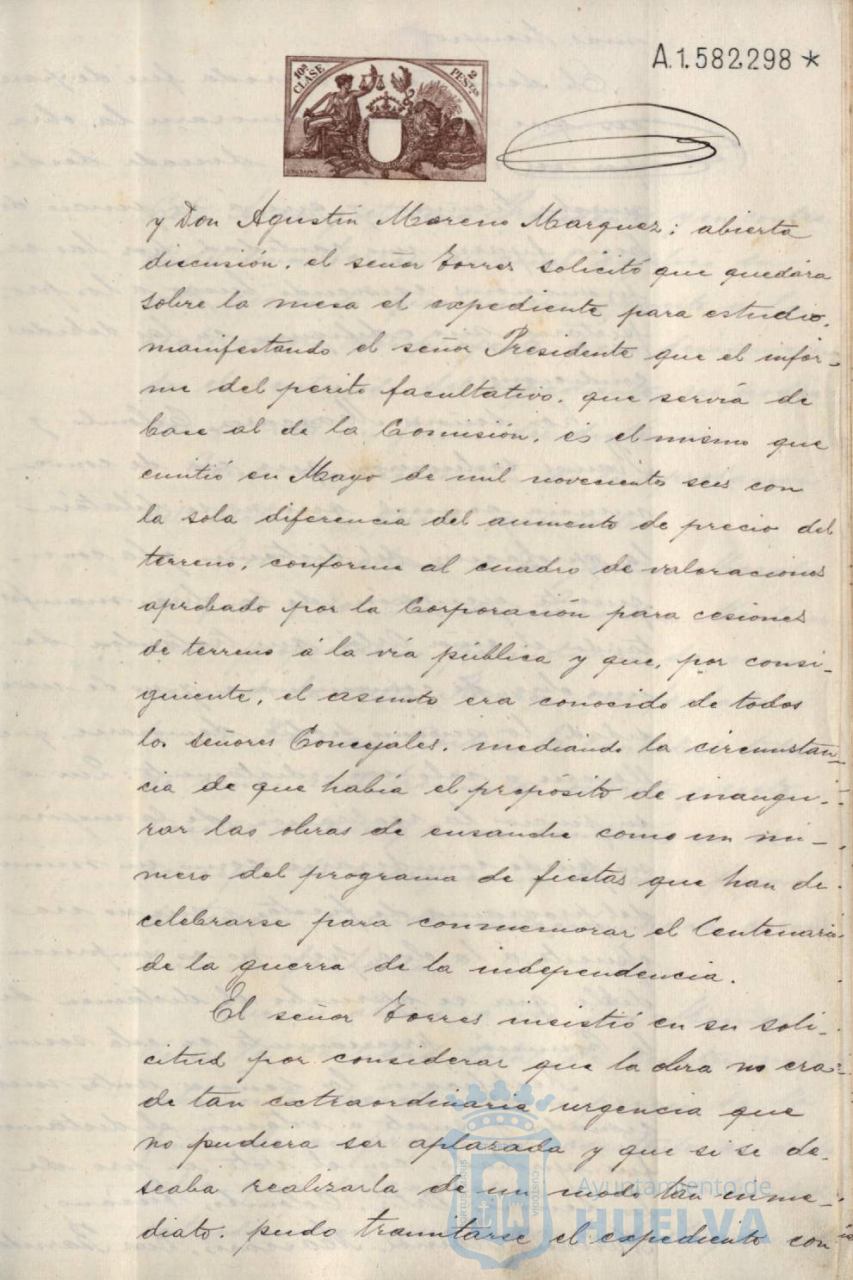 A.1.582.298 *
10ª CLASE
2 PESTAS
y Don Agustín Moreno Marquez; abierta
discusión, el señor Torres solicitó que quedára
sobre la mesa el expediente para estudio,
manifestando el señor Presidente que el infor-
me del perito facultativo, que servia de
base al de la Comisión, és el mismo que
emitió en Mayo de mil novecientos seis con
la sola diferencia del aumento de precio del
terreno, conforme al cuadro de valoraciones
aprobado por la Corporación para cesiones
de terreno á la vía pública y que, por consi-
guiente, el asunto era conocido de todos
los señores Concejales, mediando la circunstan-
cia de que había el propósito de inaugu-
rar las obras de ensanche como un nú-
mero del programa de fiestas que han de
celebrarse para conmemorar el Centenario
de la guerra de la independencia.
El señor Torres insistió en su soli-
citud por considerar que la obra no era
de tan extraordinaria urgencia que
no pudiera ser aplazada y que si se de-
seaba realizarla de un modo tan inme-
diato, pudo tramitarse el expediente con
Ayuntamiento de
HUELVA